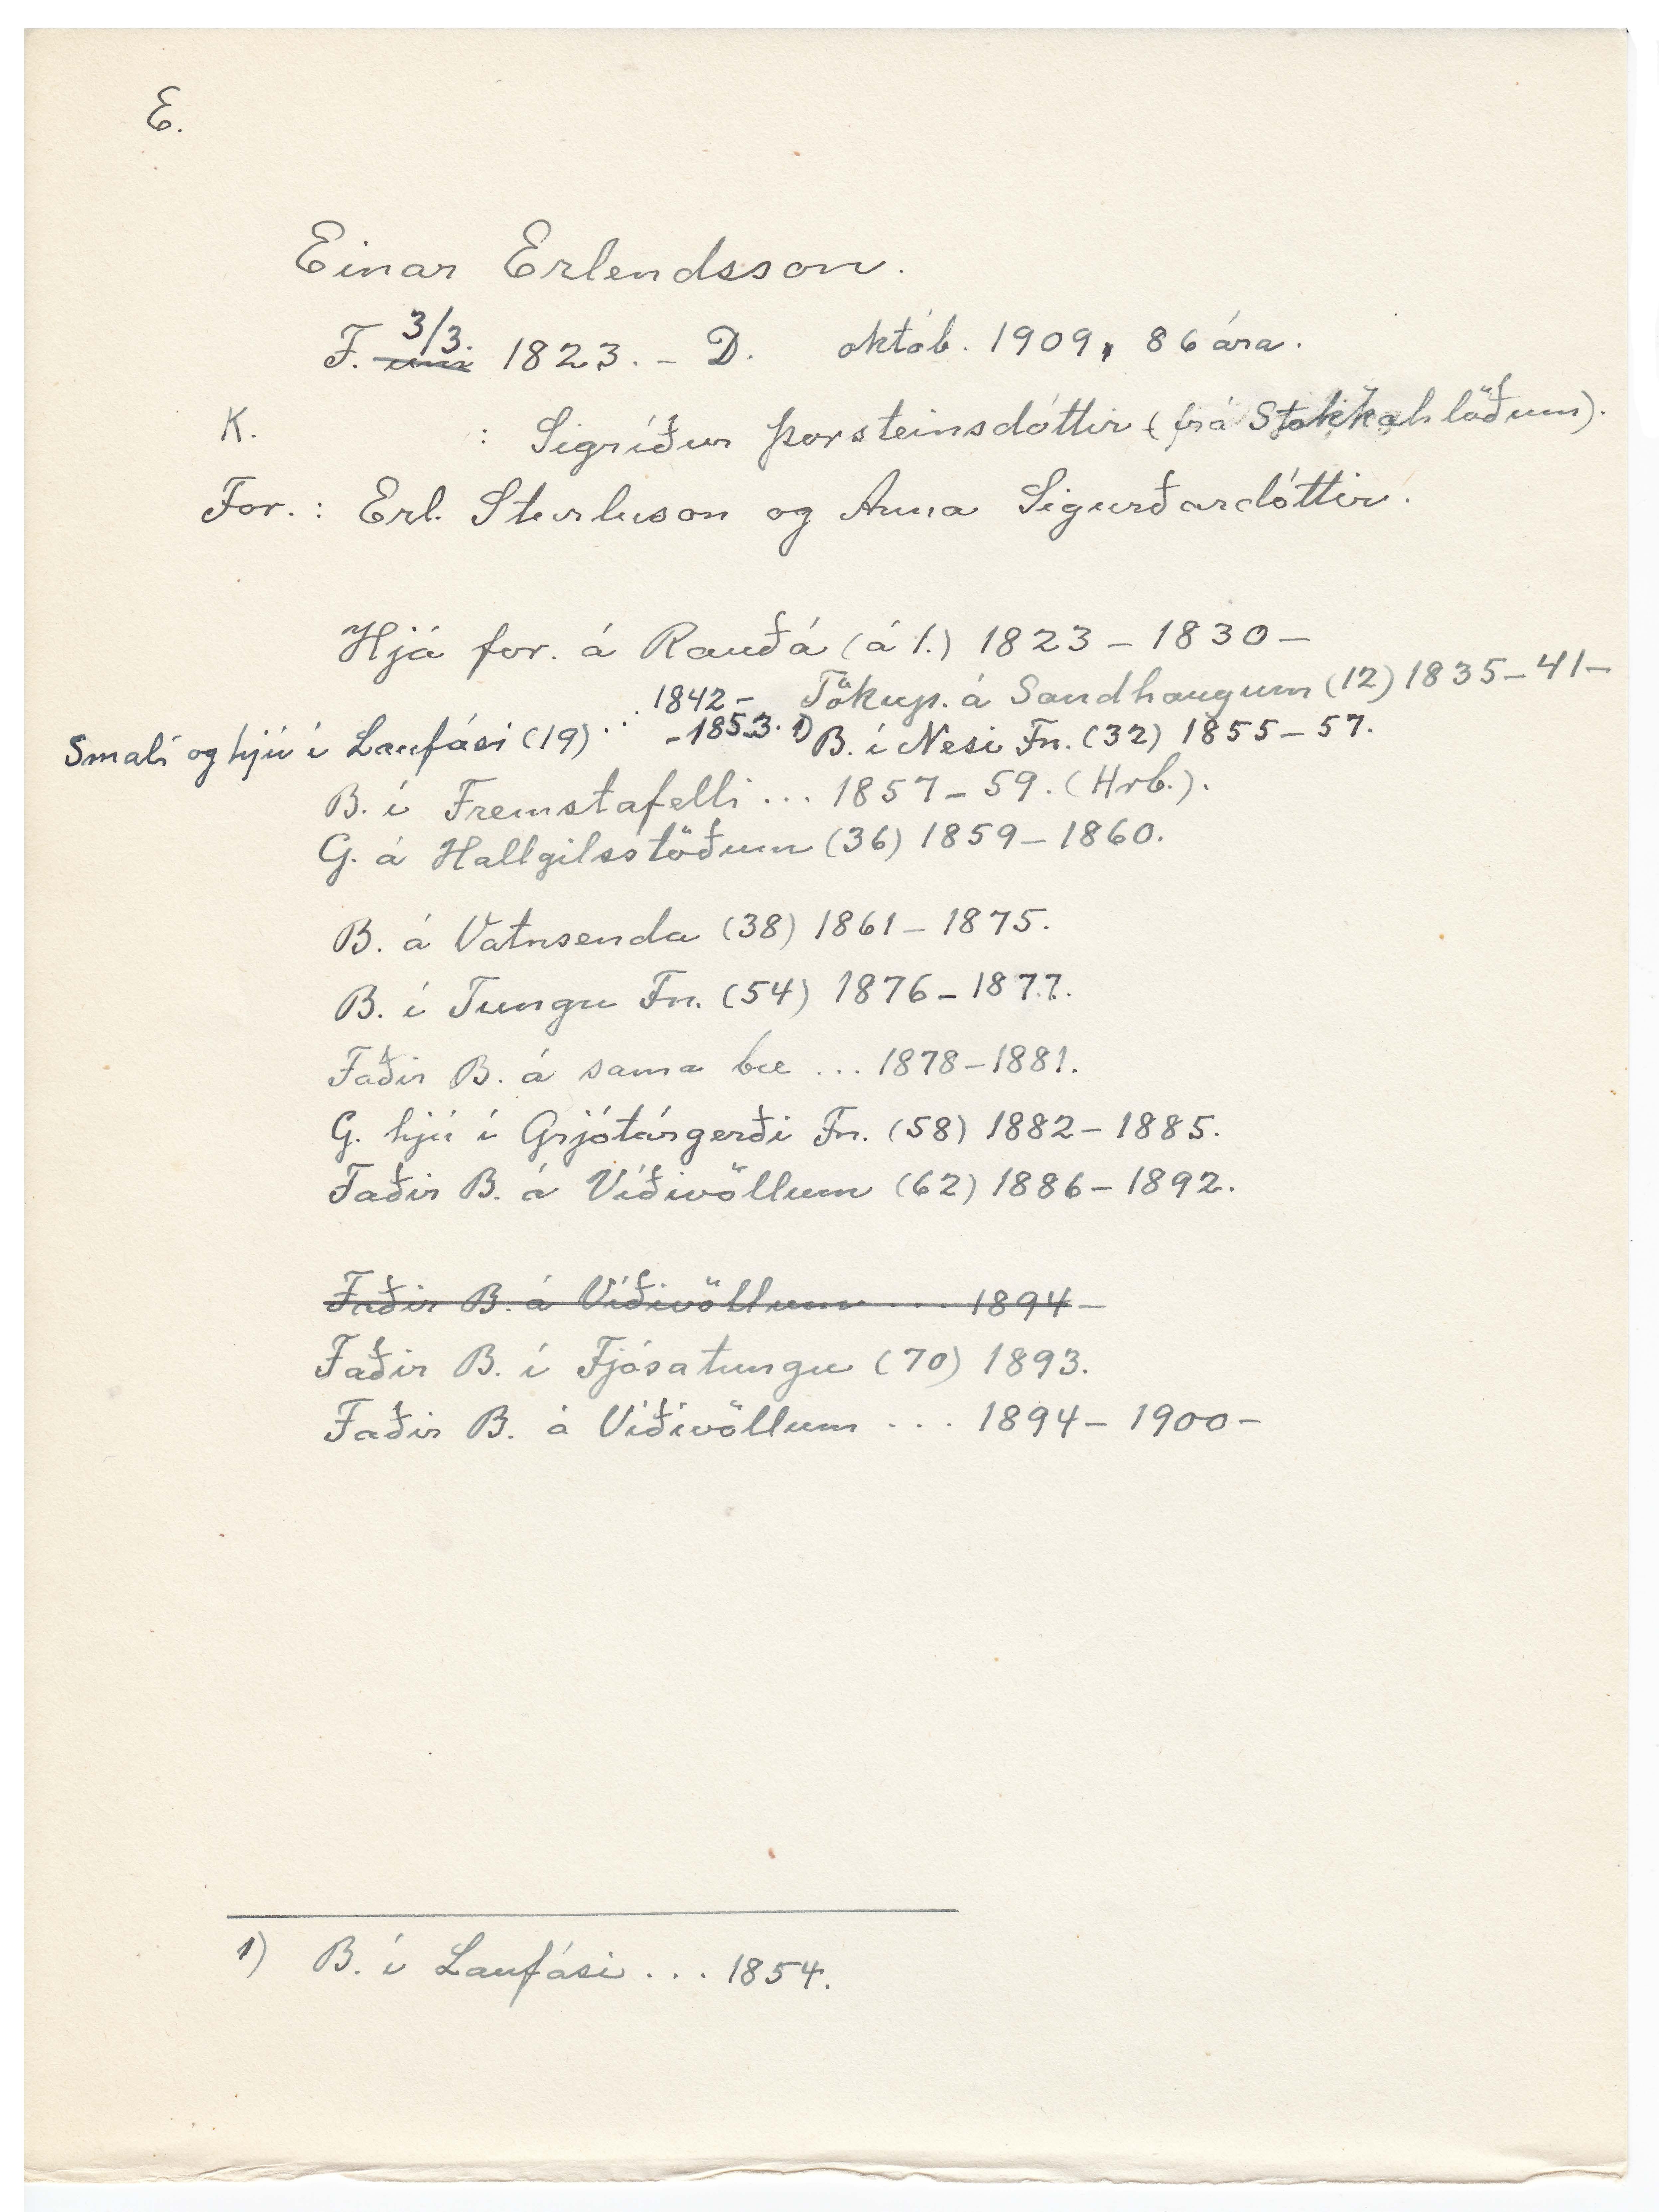 E.
Einar Erlendsson.
F. 3/3. 1823. – D. októb. 1909, 86 ára.
K. : Sigríður Þorsteinsdóttir (frá Stokkahlöðum).
For. : Erl. Sturluson og Anna Sigurðardóttir.
Hjá for. á Rauðá (á 1.) 1823 – 1830 –
Tökup. á Sandhaugum (12) 1835 – 41 –
Smali og hjú í Laufási (19) ... 1842 – – 1853. 1) B. í Nesi Fn. (32) 1855 – 57.
B. í Fremstafelli ... 1857 – 59. (Hrb.).
G. á Hallgilsstöðum (36) 1859 – 1860.
B. á Vatnsenda (38) 1861 – 1875.
B. í Tungu Fn. (54) 1876 – 1877.
Faðir B. á sama bæ ... 1878 – 1881.
G. hjú í Grjótárgerði Fn. (58) 1882 – 1885.
Faðir B. á Víðivöllum (62) 1886 – 1892.
Faðir B. á Víðivöllum ... 1894 –
Faðir B. í Fjósatungu (70) 1893.
Faðir B. á Víðivöllum ... 1894 – 1900 –
1) B. í Laufási ... 1854.